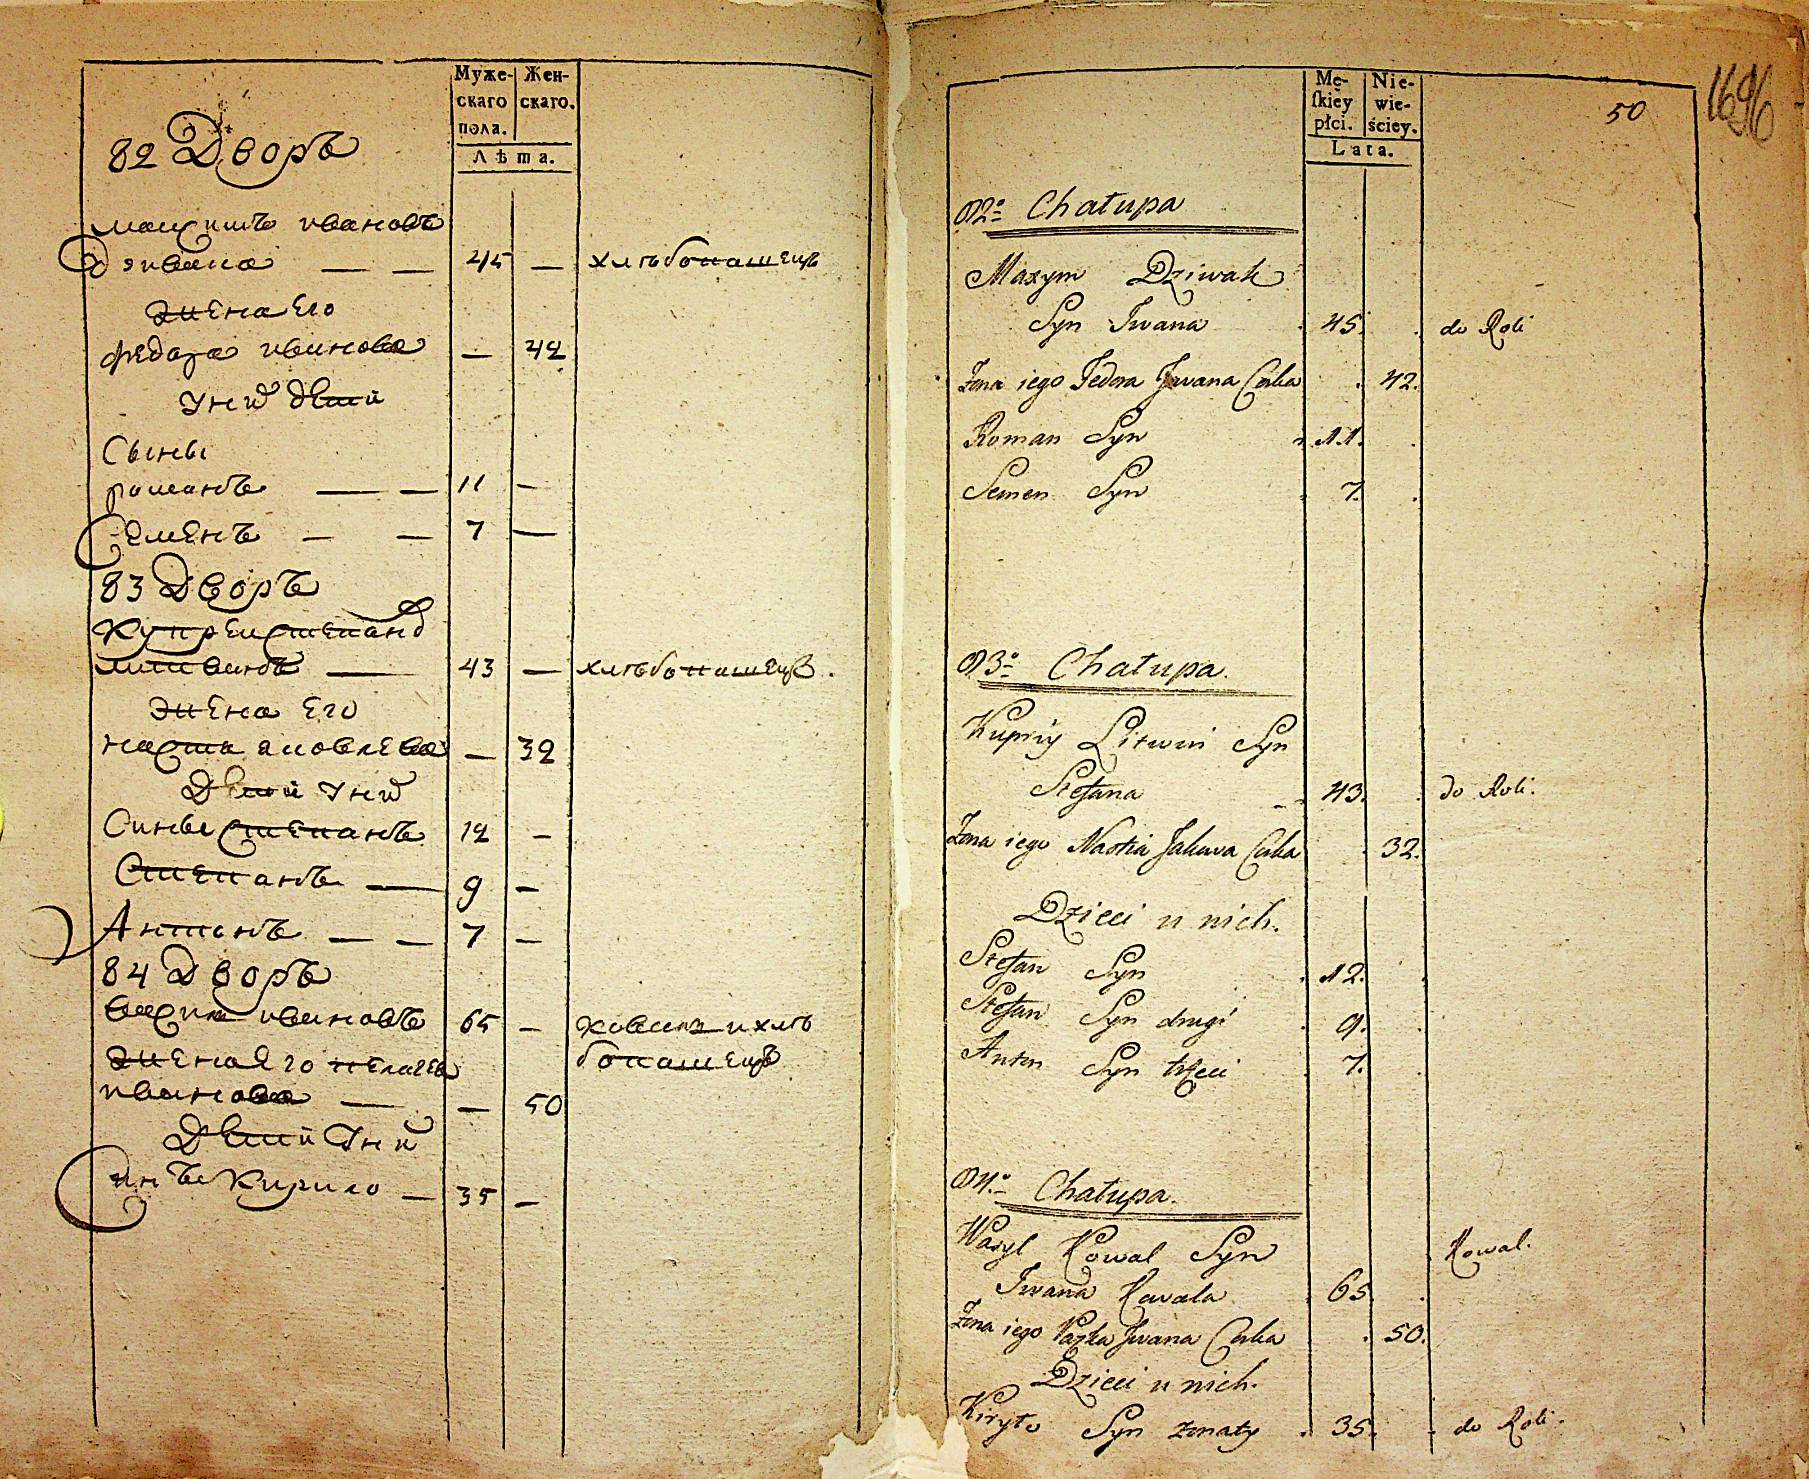 Муже- Жен-
скаго скаго.
пола.
Лѣта.
82 Дворъ
максимъ ивановъ
дзивака — — 45 — хлѣбопашецъ
жена Его
федора иванова — 42
У них дети
Сыны
романъ — — 11 —
Семенъ — — 7 —
83 Дворъ
Купреи степанов
литвинъ — 43 — хлѣбопашецъ.
жена Его
настя яковлева — 32
Дети У них
Сины степанъ 12 —
Степанъ — 9 —
Антонъ — — 7 —
84 Дворъ
васил ивановъ 65 — коваль и хлѣ
жена Его пелагея бопашецъ
иванова — — 50
Дети У них
Синъ Кирило — 35 —
Mę- Nie-
ſkiey wie-
płci. ściey.
Lata.
50
1696
82º Chałupa
Maxym Dziwak
Syn Iwana 45. do Roli
Żona iego Fedora Iwana Corka 42.
Roman Syn 11.
Semen Syn 7.
83º Chałupa.
Kupriy Litwin Syn
Stefana 43. do Roli.
Żona iego Nastia Jakuwa Corka 32.
Dzieci u nich.
Stefan Syn 12.
Stefan Syn drugi 9.
Anton Syn trzeci 7.
84.º Chałupa.
Wasyl Kowal Syn Kowal.
Iwana Kowala 65.
Żona iego Iwana Corka 50.
Dzieci u nich.
Kiryło Syn żonaty 35. do Roli.